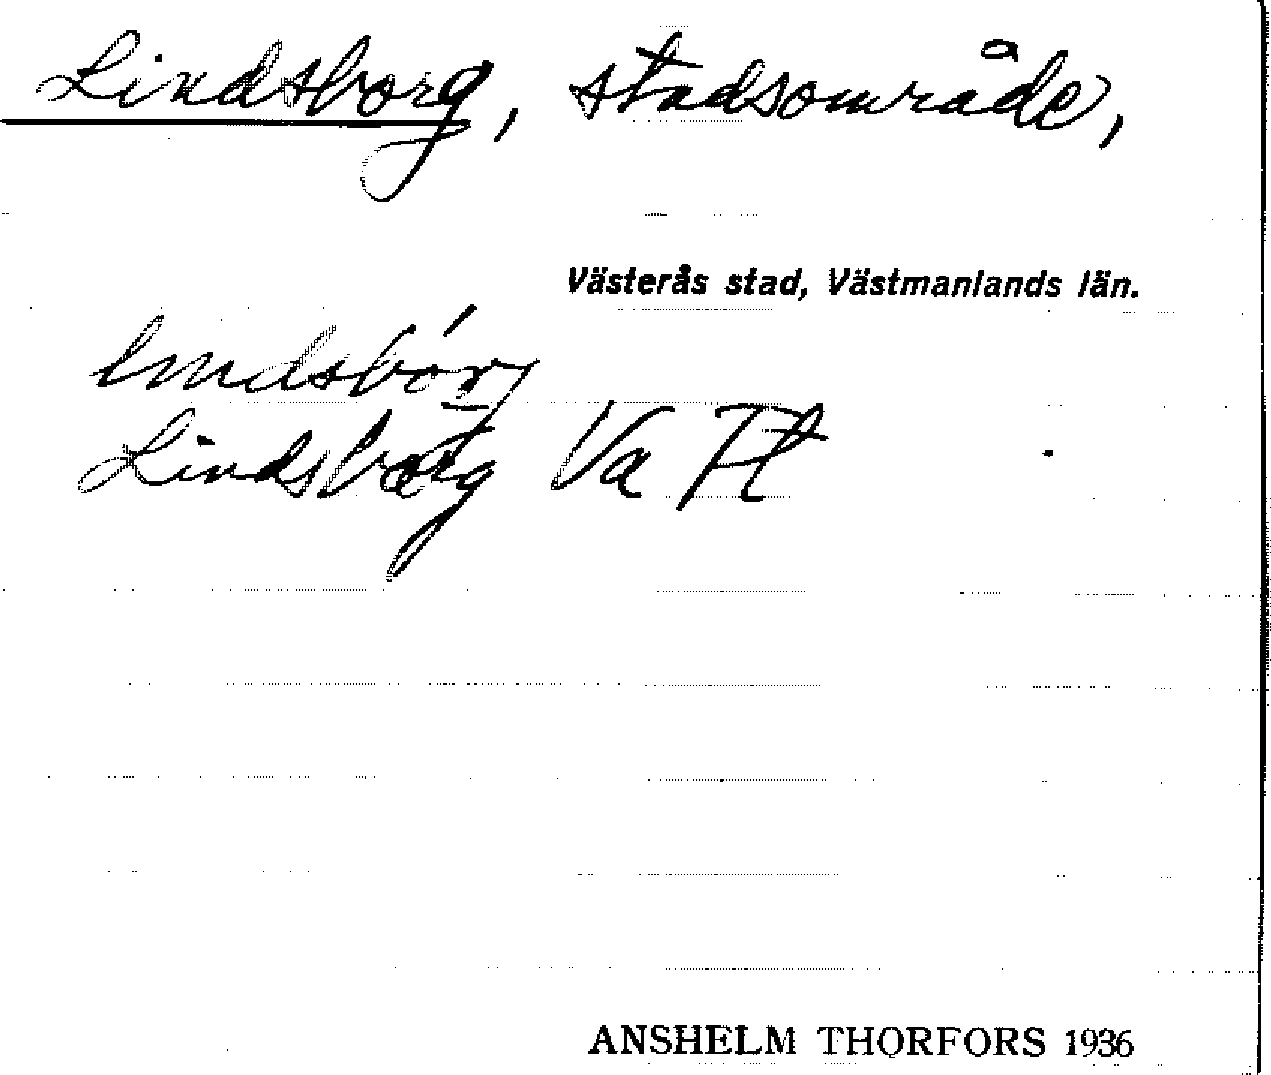 Lindsborg, stadsområde,
Västerås stad, Västmanlands län.
lindsbórj
Lindsborg Va Tt
ANSHELM THORFORS 1936